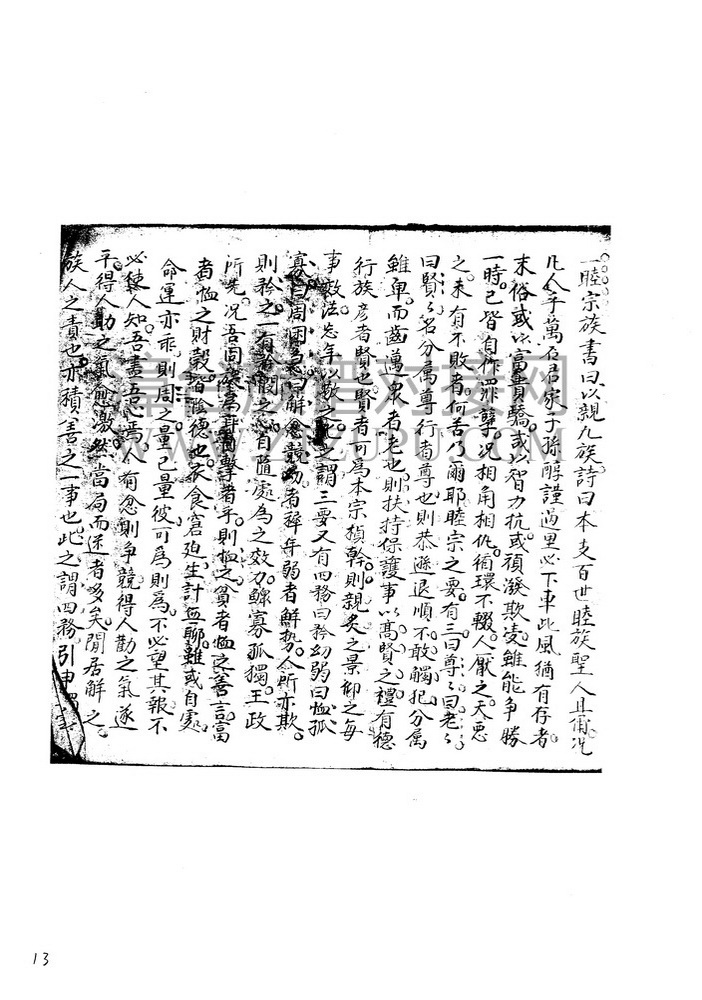 一睦宗族書曰以親九族詩曰本支百世睦族聖人且爾況
凡人乎萬石君家子孫醇謹過里必下車此風猶有存者
末俗或以富貴驕或以智力抗或頑潑欺凌雖能爭勝
一時已皆自作罪孽况相角相仇循環不輟人厭之天惡
之未有不敗者何苦乃爾耶睦宗之要有三曰尊〻曰老〻
曰賢〻名分屬尊行者尊也則恭遜退順不敢觸犯分屬
雖卑而齒邁衆者老也則扶持保護事以高賢之禮有德
行族彦者賢也賢者可為本宗楨幹則親炙之景仰之每
事效法忘年以敬之此之謂三要又有四務曰矜幼弱曰恤孤
寡曰周困急曰解忿競幼者稺年弱者鮮势人所亦欺
則矜之一有
之自隨處為之效力鰥寡孤獨王政
所先况吾同族
者乎則恤之貧者恤之善言富
者恤之財穀皆陰德也衣食窘廹生計無聊雖或自處
命運亦乖則周之量已量彼可為則為不必望其報不
必使人知吾盡吾心焉人有忿則争競得人勸之氣遂
平得人助之氣愈激然當局而迷者多矣閒居解之
族人之責也亦積善之一事也此之謂四務引申
漳台族谱对接网
WWW.ZTZUPU.COM
13